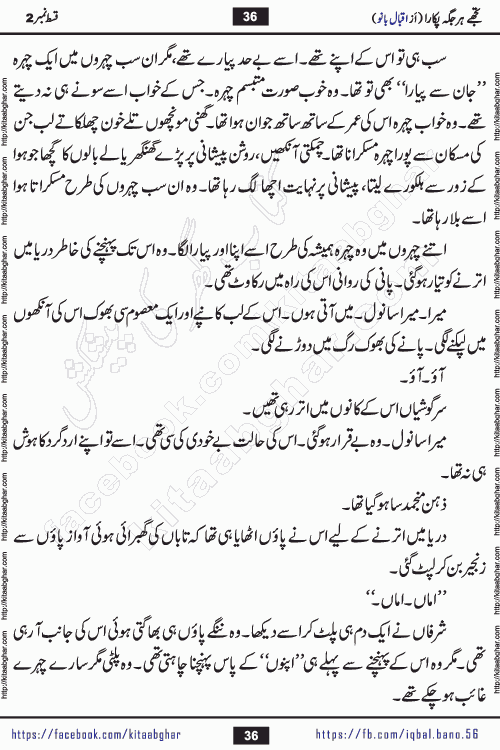 تجھے ہر جگہ پکارا (از اقبال بانو) 36 قسط نمبر 2
سب ہی تو اس کے اپنے تھے۔ اسے بے حد پیارے تھے، مگر ان سب چہروں میں ایک چہرہ
’’جان سے پیارا‘‘ بھی تو تھا۔ وہ خوب صورت متبسم چہرہ۔ جس کے خواب اسے سونے ہی نہ دیتے
تھے۔ وہ خواب چہرہ اس کی عمر کے ساتھ ساتھ جوان ہوا تھا۔ گھنی مونچھوں تلے خون چھلکاتے لب جن
کی مسکان سے پورا چہرہ مسکراتا تھا۔ چمکتی آنکھیں، روشن پیشانی پر پڑے گھنگھریالے بالوں کا گچھا جو ہوا
کے زور سے ہلکورے لیتا، پیشانی پر نہایت اچھا لگ رہا تھا۔ وہ ان سب چہروں کی طرح مسکراتا ہوا
اسے بلا رہا تھا۔
اتنے چہروں میں وہ چہرہ ہمیشہ کی طرح اسے اپنا اور پیارا لگا۔ وہ اس تک پہنچنے کی خاطر دریا میں
اترنے کو تیار ہو گئی۔ پانی کی روانی اس کی راہ میں رکاوٹ تھی۔
میرا۔ میرا سانول۔ میں آتی ہوں۔ اس کے لب کانپے اور ایک معصوم سی بھوک اس کی آنکھوں
میں لپکنے لگی۔ پانے کی بھوک رگ رگ میں دوڑنے لگی۔
آؤ۔ آؤ۔
سرگوشیاں اس کے کانوں میں اتر رہی تھیں۔
میرا سانول۔ وہ بے قرار ہو گئی۔ اس کی حالت بے خودی کی سی تھی۔ اسے تو اپنے اردگرد کا ہوش
ہی نہ تھا۔
ذہن منجمد سا ہو گیا تھا۔
دریا میں اترنے کے لیے اس نے پاؤں اٹھایا ہی تھا کہ تاباں کی گھبرائی ہوئی آواز پاؤں سے
زنجیر بن کر لپٹ گئی۔
’’اماں۔ اماں۔‘‘
شرفاں نے ایک دم ہی پلٹ کر اسے دیکھا۔ وہ ننگے پاؤں ہی بھاگتی ہوئی اس کی جانب آ رہی
تھی۔ مگر وہ اس کے پہنچنے سے پہلے ہی ’’اپنوں‘‘ کے پاس پہنچنا چاہتی تھی۔ وہ پلٹی مگر سارے چہرے
غائب ہو چکے تھے۔
https://facebook.com/kitaabghar 36 https://fb.com/iqbal.bano.56
http://kitaabghar.com
http://kitaabghar.com
http://kitaabghar.com
http://kitaabghar.com
http://kitaabghar.com
http://kitaabghar.com
http://kitaabghar.com
http://kitaabghar.com
کتاب گھر کی پیشکش
kitaabghar.com
facebook.com/kitaabghar